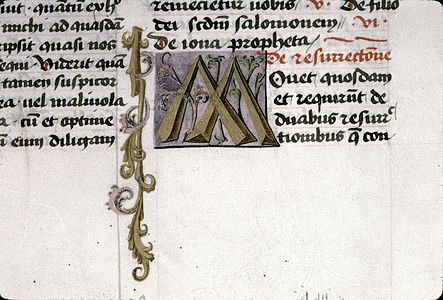 sunt. quantū exho
michi ad quosdam
ipsit quasi nos
equi Viderit qua
tamen suspicor
ra uel maliuola
. cū et optime
ū eum diligam
remietetur uobis. V. De filio
dei scdm̄ salomonem. VI.
De iona propheta
De resurrectione
Mouet quosdam
et requirūt de
duabus resurr
tionibus q̄ con